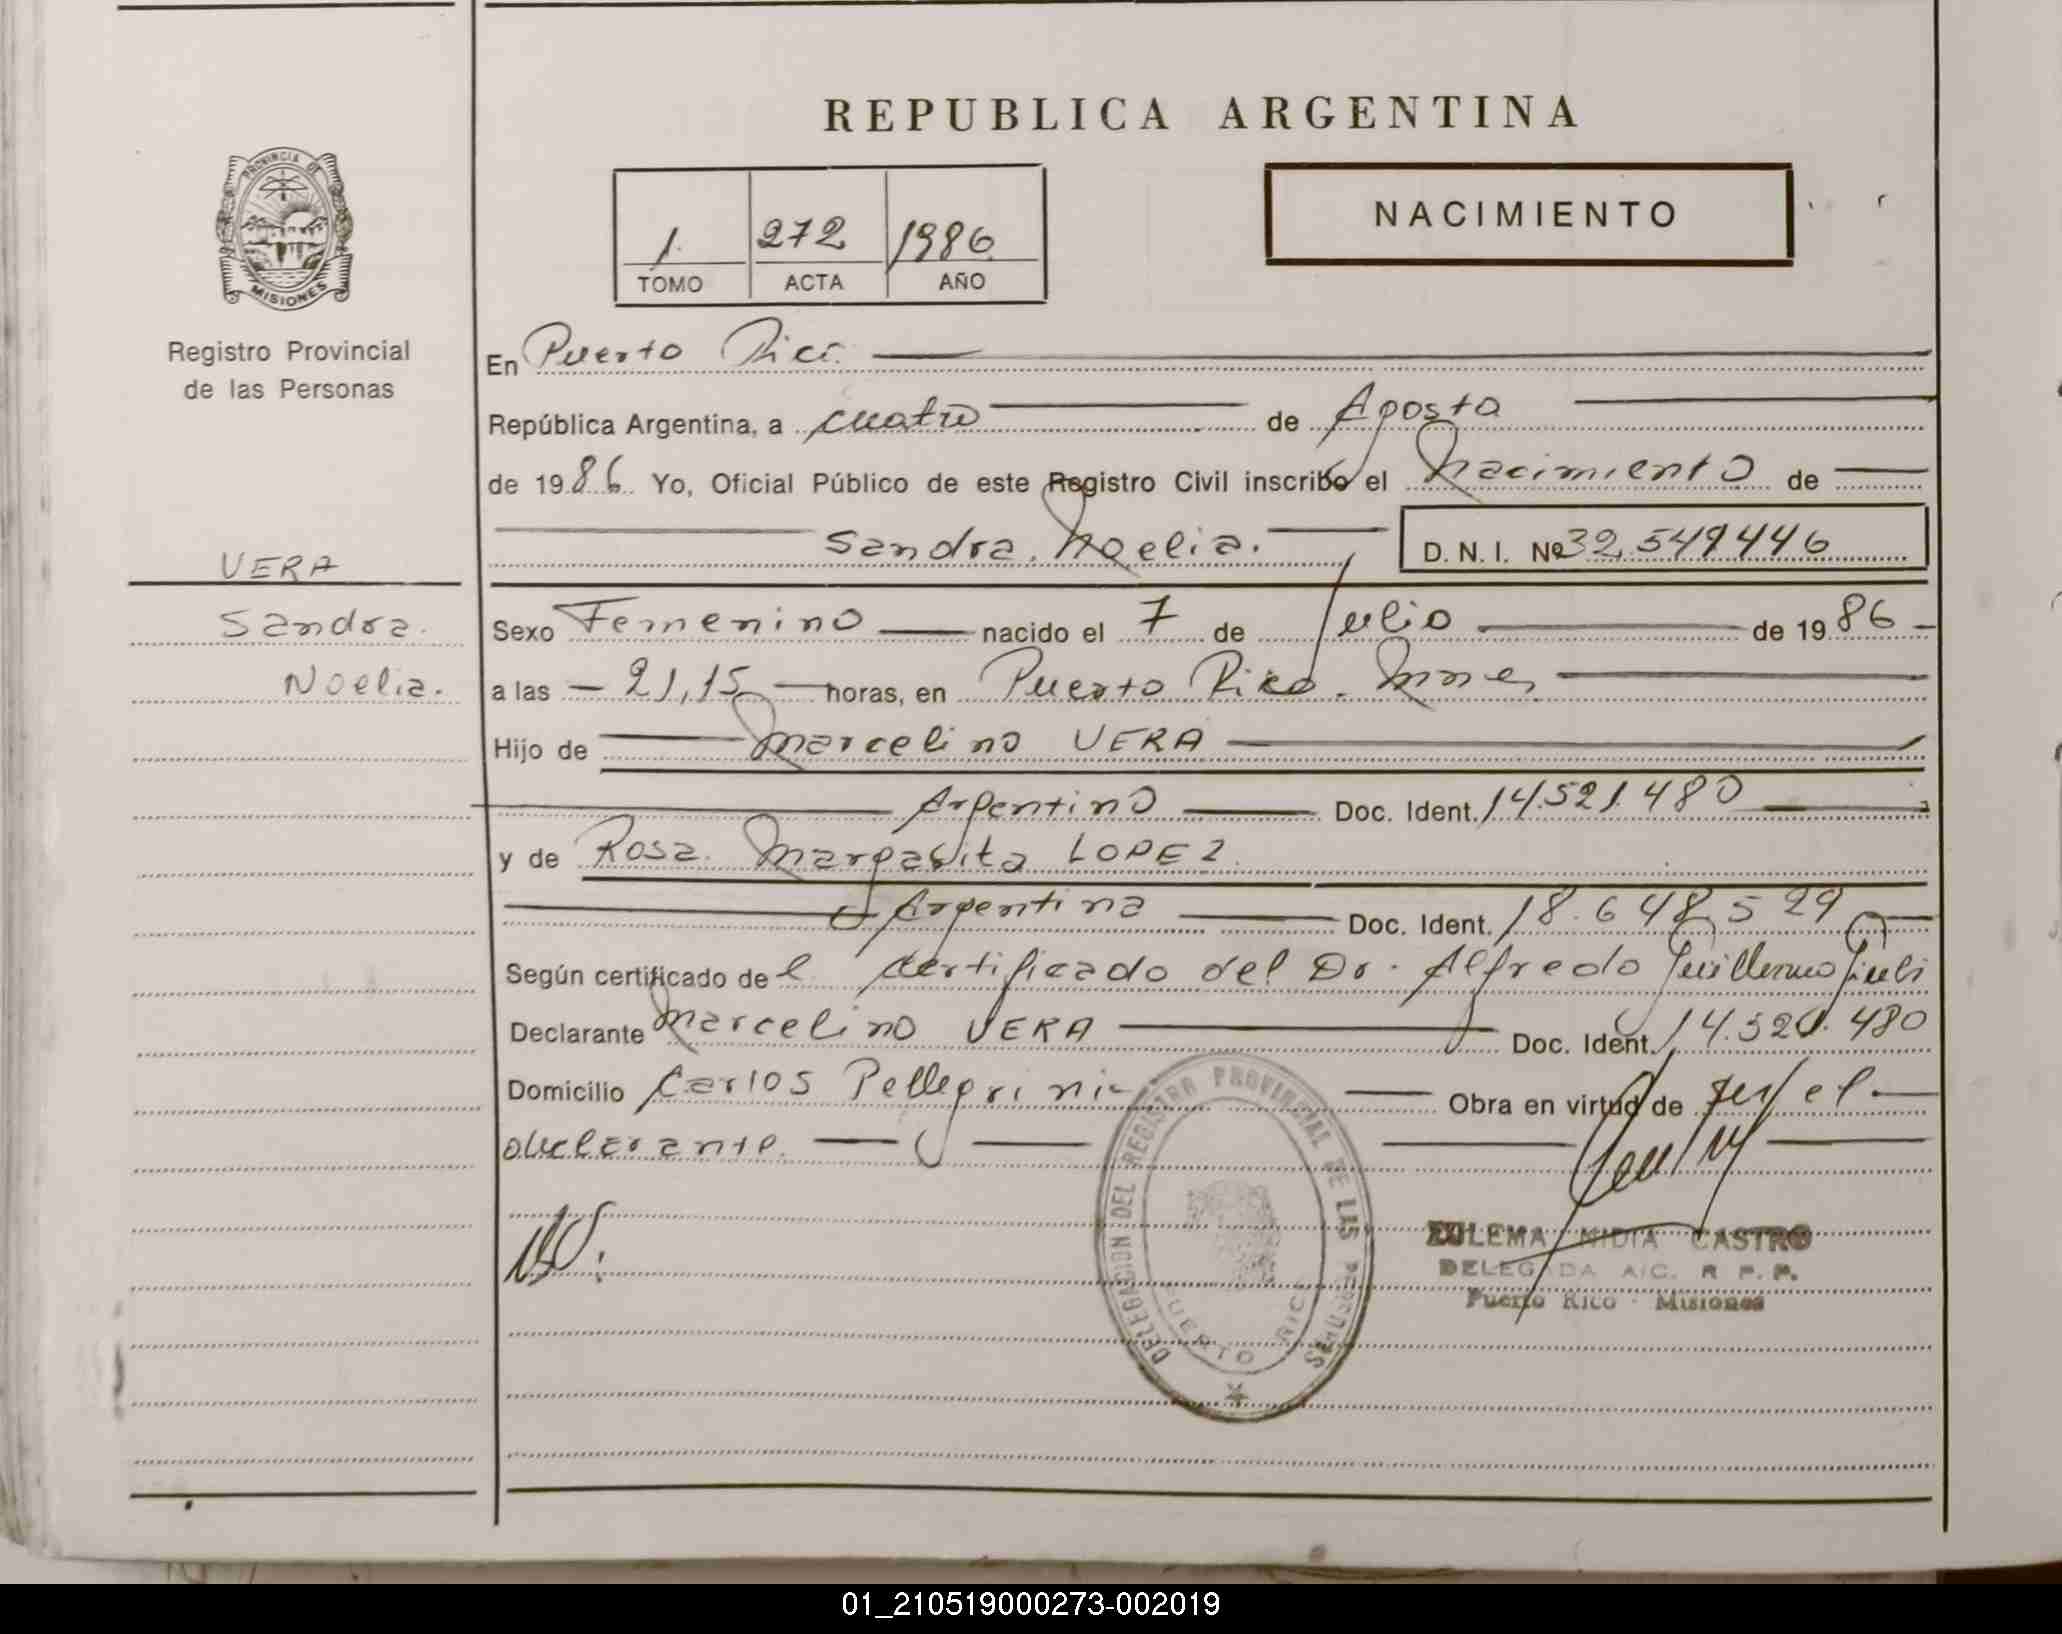 REPUBLICA ARGENTINA
PROVINCIA DE
MISIONES
Registro Provincial
de las Personas
1. 272 1986
TOMO ACTA AÑO
NACIMIENTO
En Puerto Rico.
República Argentina, a cuatro de Agosto
de 1986. Yo, Oficial Público de este Registro Civil inscribo el Nacimiento de
Sandra. Noelia. D. N. I. Nº 32.549446
VERA
Sandra.
Noelia.
Sexo Femenino nacido el 7 de Julio de 1986
a las 21,15 horas, en Puerto Rico. Mnes
Hijo de Marcelino VERA
Argentino Doc. Ident. 14.521.480
y de Rosa. Margarita LOPEZ.
Argentina Doc. Ident. 18.648.529
Según certificado de l certificado del Dr. Alfredo Guillermo
Declarante Marcelino VERA Doc. Ident. 14.521.480
Domicilio Carlos Pellegrini Obra en virtud de ser el
declarante.
DELEGACION DEL REGISTRO PROVINCIAL DE LAS PERSONAS
PUERTO RICO
ZULEMA NIDIA CASTRO
DELEGADA A/C. R. P. P.
Puerto Rico - Misiones
01_210519000273-002019